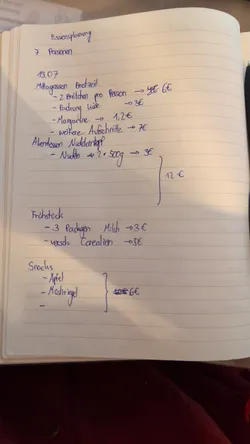 Essensplanung
7 Personen
19.07
Mittagessen Brotzeit
- 2 Brötchen pro Person → 6€
- Packung → 3€
- Margarine → 1,2€
- weitere Aufschnitte → 7€
Abendessen Nudeleintopf
- Nudeln → 2 • 500g → 3€
12 €
Frühstück
- 3 Packungen Milch → 3€
- versch. Cerealien → 8€
Snacks
- Äpfel
- Müsliriegel
6€
-